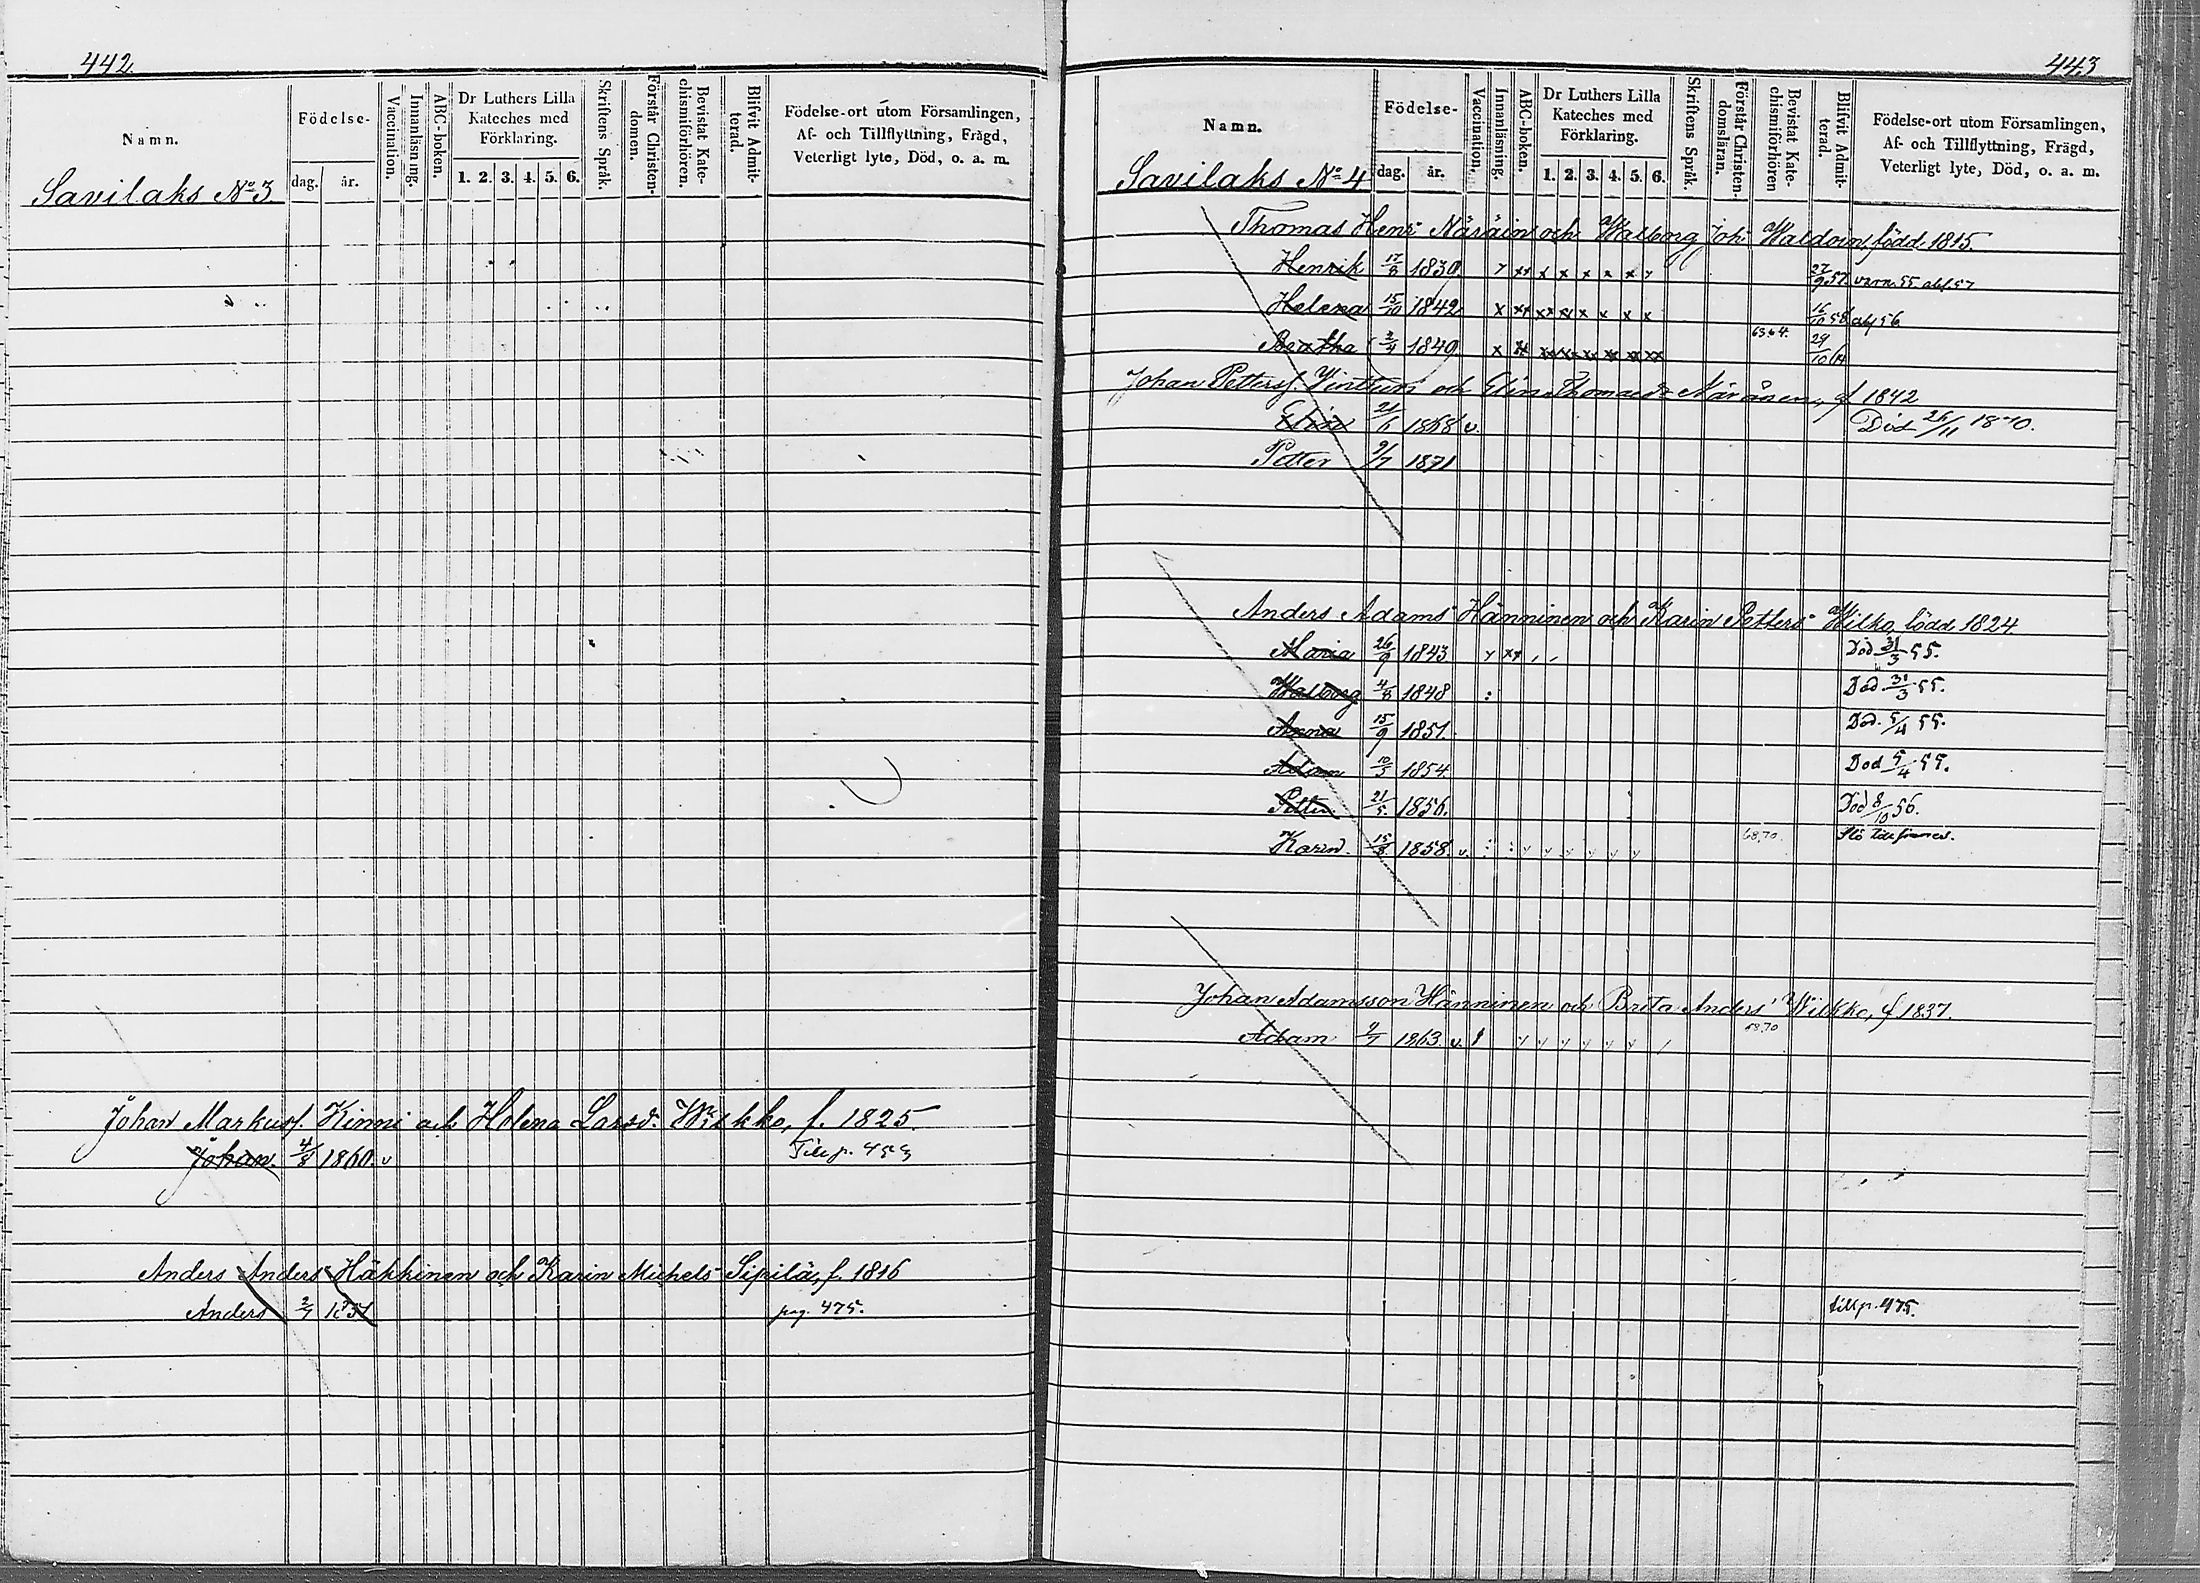 442
Namn. Födelse- dag. år. Vaccination. Innanläsning. ABC-boken. Dr Luthers Lilla Kateches med Förklaring. 1. 2. 3. 4. 5. 6. Skriftens Språk. Förstår Christendomen. Bevistat Katechismiförhören. Blifvit Admitterad. Födelse-ort utom Församlingen, Af- och Tillflyttning, Frägd, Veterligt lyte, Död, o. a. m.
Savilaks No 3.
Johan Markuss. Kinni och Helena Larsd. Wilkko, f. 1825.
Johan. 4/8 1860. v Till p. 459
Anders Anders Häkkinen och Karin Michels Sipilä, f. 1816
Anders 2/7 1851 pag. 475.
443
Namn. Födelse- dag. år. Vaccination. Innanläsning. ABC-boken. Dr Luthers Lilla Kateches med Förklaring. 1. 2. 3. 4. 5. 6. Skriftens Språk. Förstår Christendomsläran. Bevistat Katechismiförhören Blifvit Admitterad. Födelse-ort utom Församlingen, Af- och Tillflyttning, Frägd, Veterligt lyte, Död, o. a. m.
Savilaks No 4
Thomas Henr Näräin och Walborg Joh. född 1815.
Henrik 17/8 1839. 27/9 57. 55 57
Helena 15/10 1842 16/10 58 56
Beatha 3/4 1849 63.64. 29/10 64
Johan Petterss. och Elin Thomaed. Näränen, f 1842
Elin 1868 v. Död 26/11 1870.
Petter 9/7 1871
Anders Adams Hänninen och Karin Petters Wilko, född 1824
Maria 26/9 1843 Död 31/3 55.
Walborg 4/8 1848 Död 31/3 55.
Anna 15/9 1851. Död. 5/4 55.
Adam 10/3 1854 Död 5/4 55.
Petter 21/5. 1856. Död 8/10 56.
Karin. 15/8 1858. v. 68,70.
Johan Adamsson Hänninen och Brita Anders Wilkko, f 1837.
Adam 9/7 1863. v. 68.70
till p. 475.